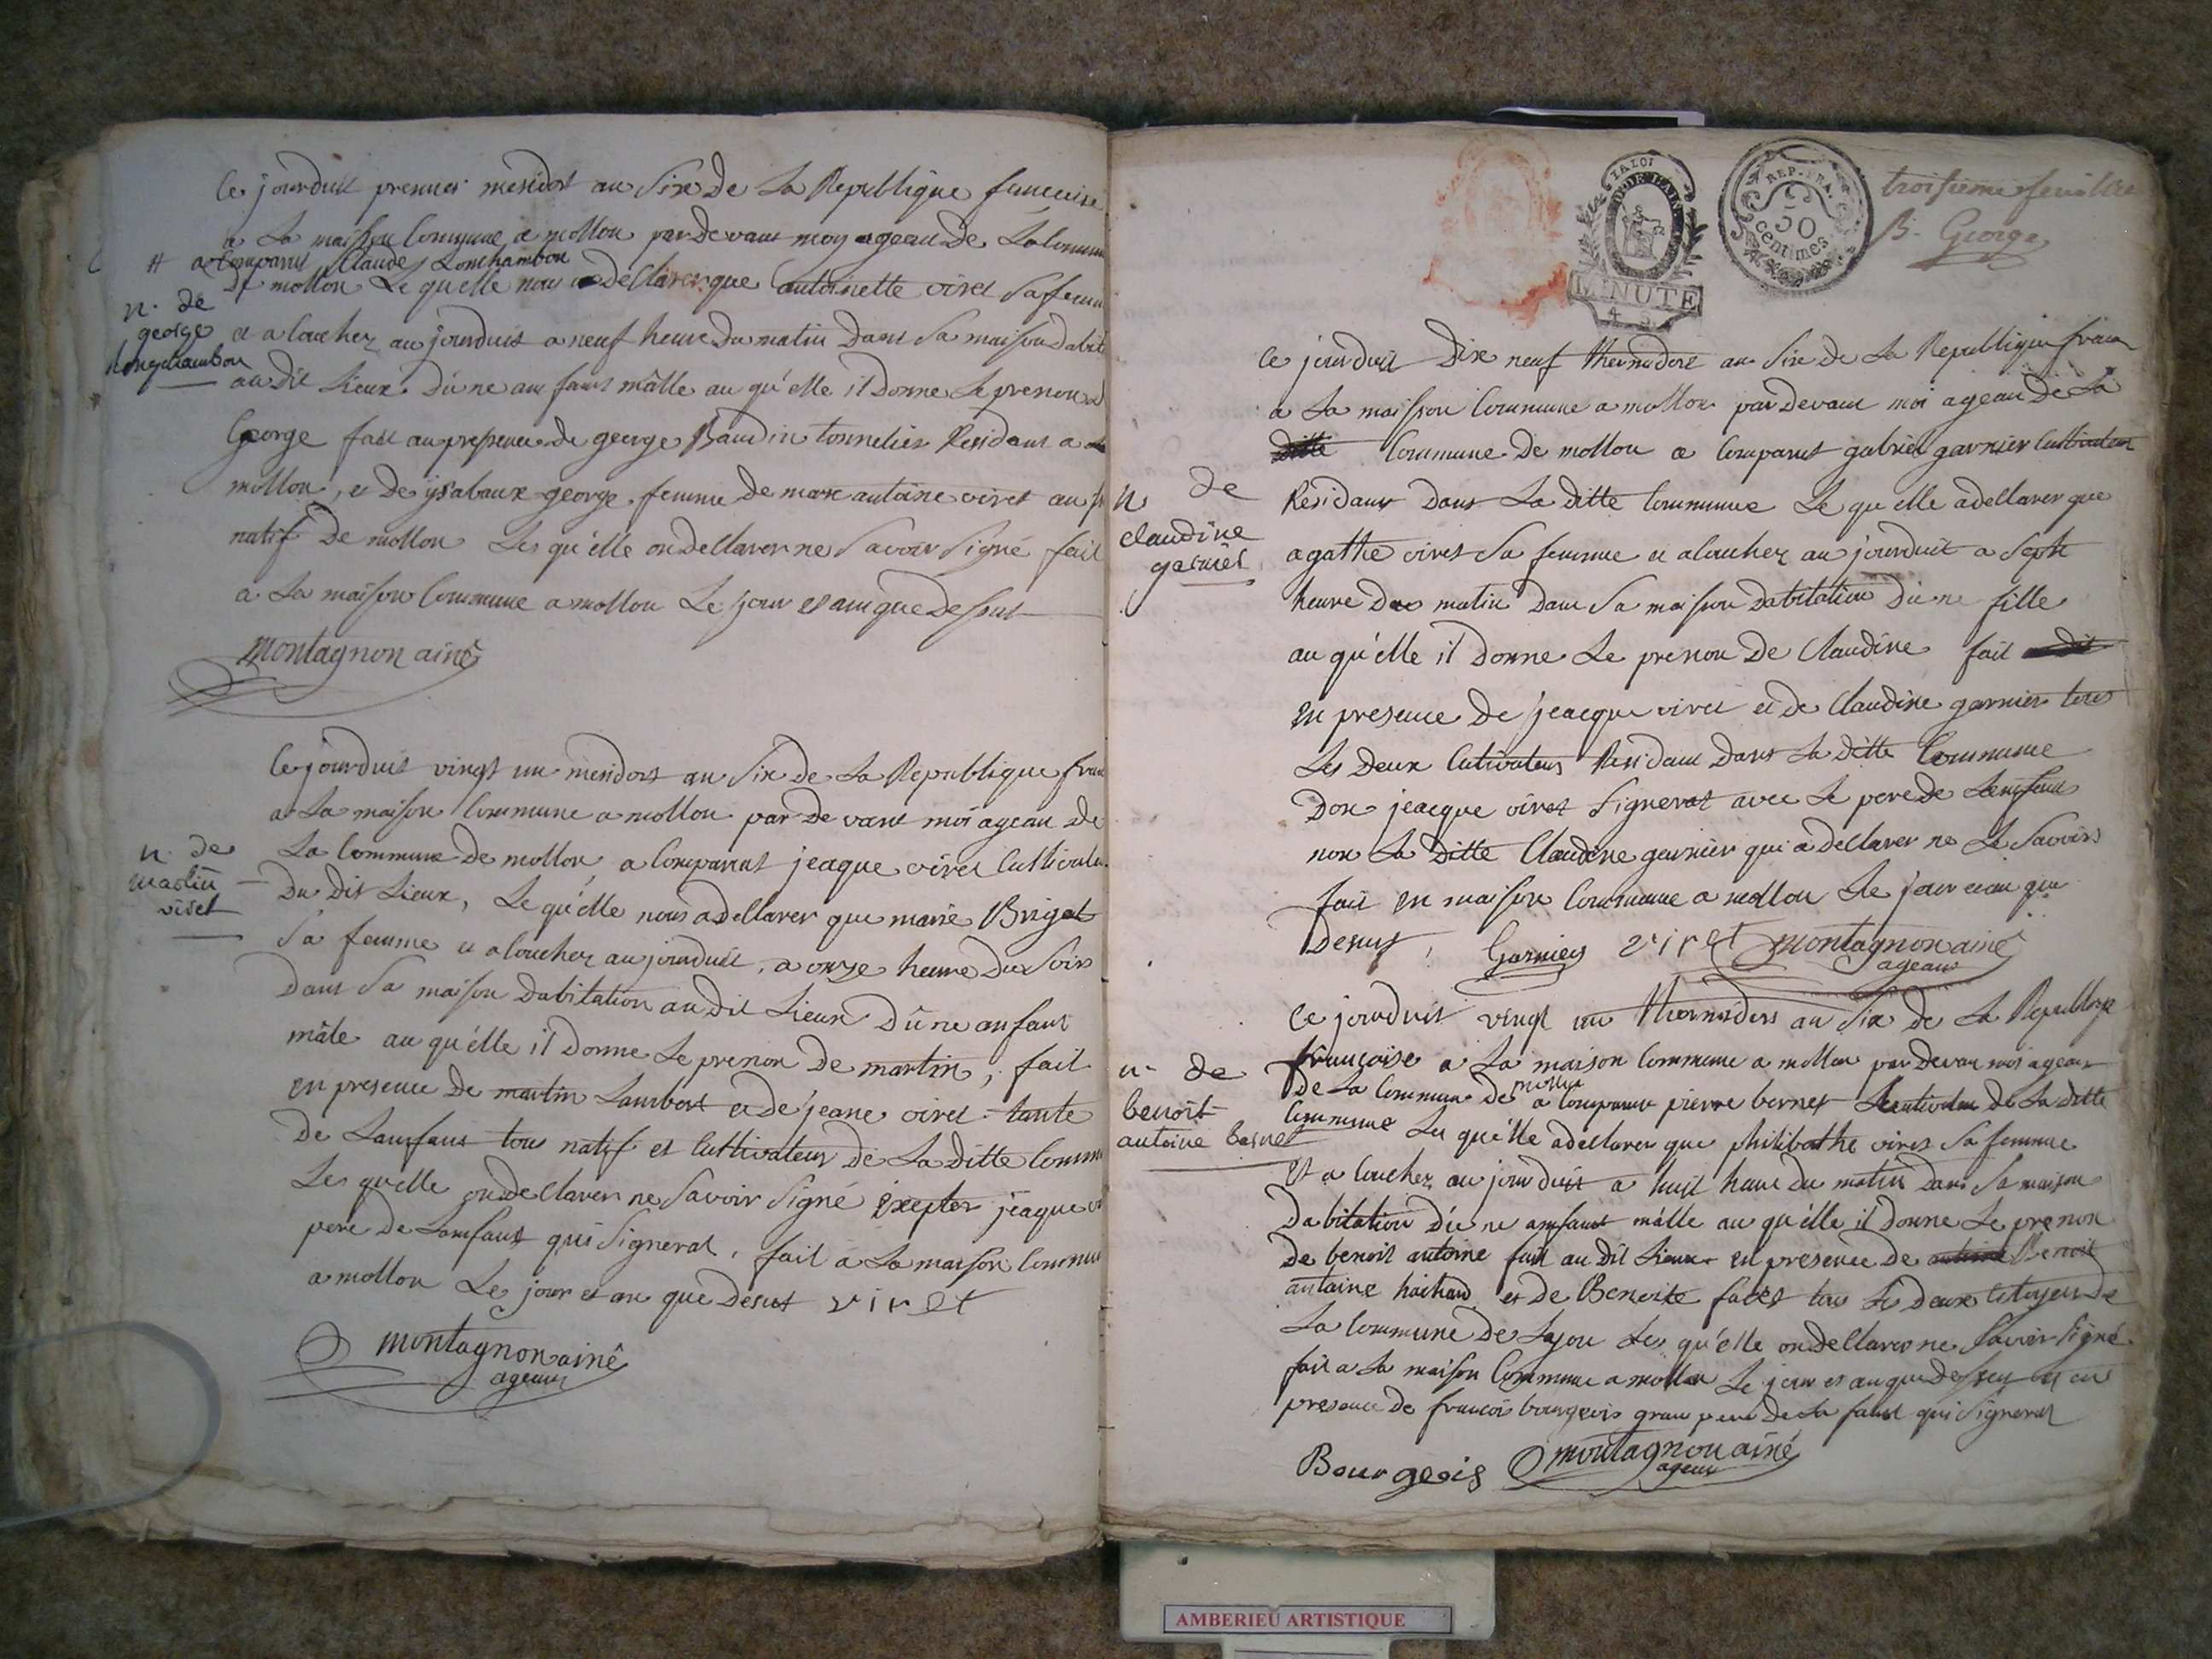 Ce jourduit premier mesidort an Six de La Republique francaise
a La maison Commune a mollon par devant moy ageant de La Commu
# a Comparut Claude Lonchambon
de mollon Le quelle nous a déllarer que antoinette viret Sa femm
n. de
george
Longchambon
et a loucher au jourduit a neuf heure du matin dans Sa maison dabit
au dit Lieux d'une anfant mâlle au qu'elle il donne Le prenon d
George fait au presence de george Baudin tonnelier Residant a
mollon, et de ysabaux george femme de marc antoine viret au
natif de mollon Les qu'elle on dellarer ne Savoir Signé fait
a La maison Commune a mollon Le jour et an que dessut
montagnon ainé
Ce jourduit vingt un mesidort an Six de La Republique fran
a La maison Commune a mollon par devant moi ageant de
n. de
martin
viret
La Commune de mollon, a Comparut jeaque viret Cultivateu
du dit Lieux, Le qu'elle nous a dellarer que marie Brigat
Sa femme et a loucher au jourduit, a onze heure du Soir
dans Sa maison dabitation au dit Lieux d'une anfant
mâle au qu'elle il donne Le prenon de martin, fait
en presence de martin Lambert et de jeane viret tante
de Lanfant tous natif et Cultivateur de La ditte Commu
Les quelle on dellarer ne Savoir Signé éxepter jeaque vi
pere de Lanfant qui Signerat, fait a La maison Commu
a mollon Le jour et an que desut viret
montagnon ainé
ageant
LA LOI
MINUTE
REP. FRA.
50
centimes
troisieme feuillet
B. George
Ce jourduit dix neuf thermidort an Six de La Republique fran
a La maison Commune a mollon par devant moi ageant de La
ditte Commune de mollon a Comparut gabriel garnier Cultivateur
n de
claudine
garnier
Residant dans La ditte Commune Le qu'elle a dellarer que
agathe viret Sa femme et a loucher au jourduit a Sept
heure du matin dans Sa maison dabitation d'une fille
au qu'elle il donne Le prenon de Claudine fait
en presence de jeacque viret et de Claudine garnier tous
Les deux Cultivateur Residant dans La ditte Commune
don jeacque viret Signerat avec Le pere de Lenfant
non La ditte Claudine garnier qui a dellarer ne Le Savoir
fait en maison Commune a mollon Le jour et an que
desut, Garnier viret montagnon ainé
ageant
Ce jourduit vingt un thermidors an Six de La Republique
françoise a La maison Commune a mollon par devan moi ageant
n. de
benoit
antoine bernet
de La Commune de mollon a Comparut pierre bernet Cultivateur de La ditte
Commune Le qu'elle a dellarer que philibathe viret Sa femme
et a loucher au jourduit a huit heure du matin dans Sa maison
dabitation d'une anfant mâlle au qu'elle il donne Le prenon
de benoit antoine fait au dit Lieux en presence de antoine Benoit
antoine et de Benoite tous Les deux Citoyen de
La Commune de Les qu'elle on dellarer ne Savoir Signé
fait a La maison Commune a mollon Le jour et an que dessus et en
presence de francois bourgeois gran pere de La fant qui Signerat
Bourgeois montagnon ainé
ageant
AMBERIEU ARTISTIQUE